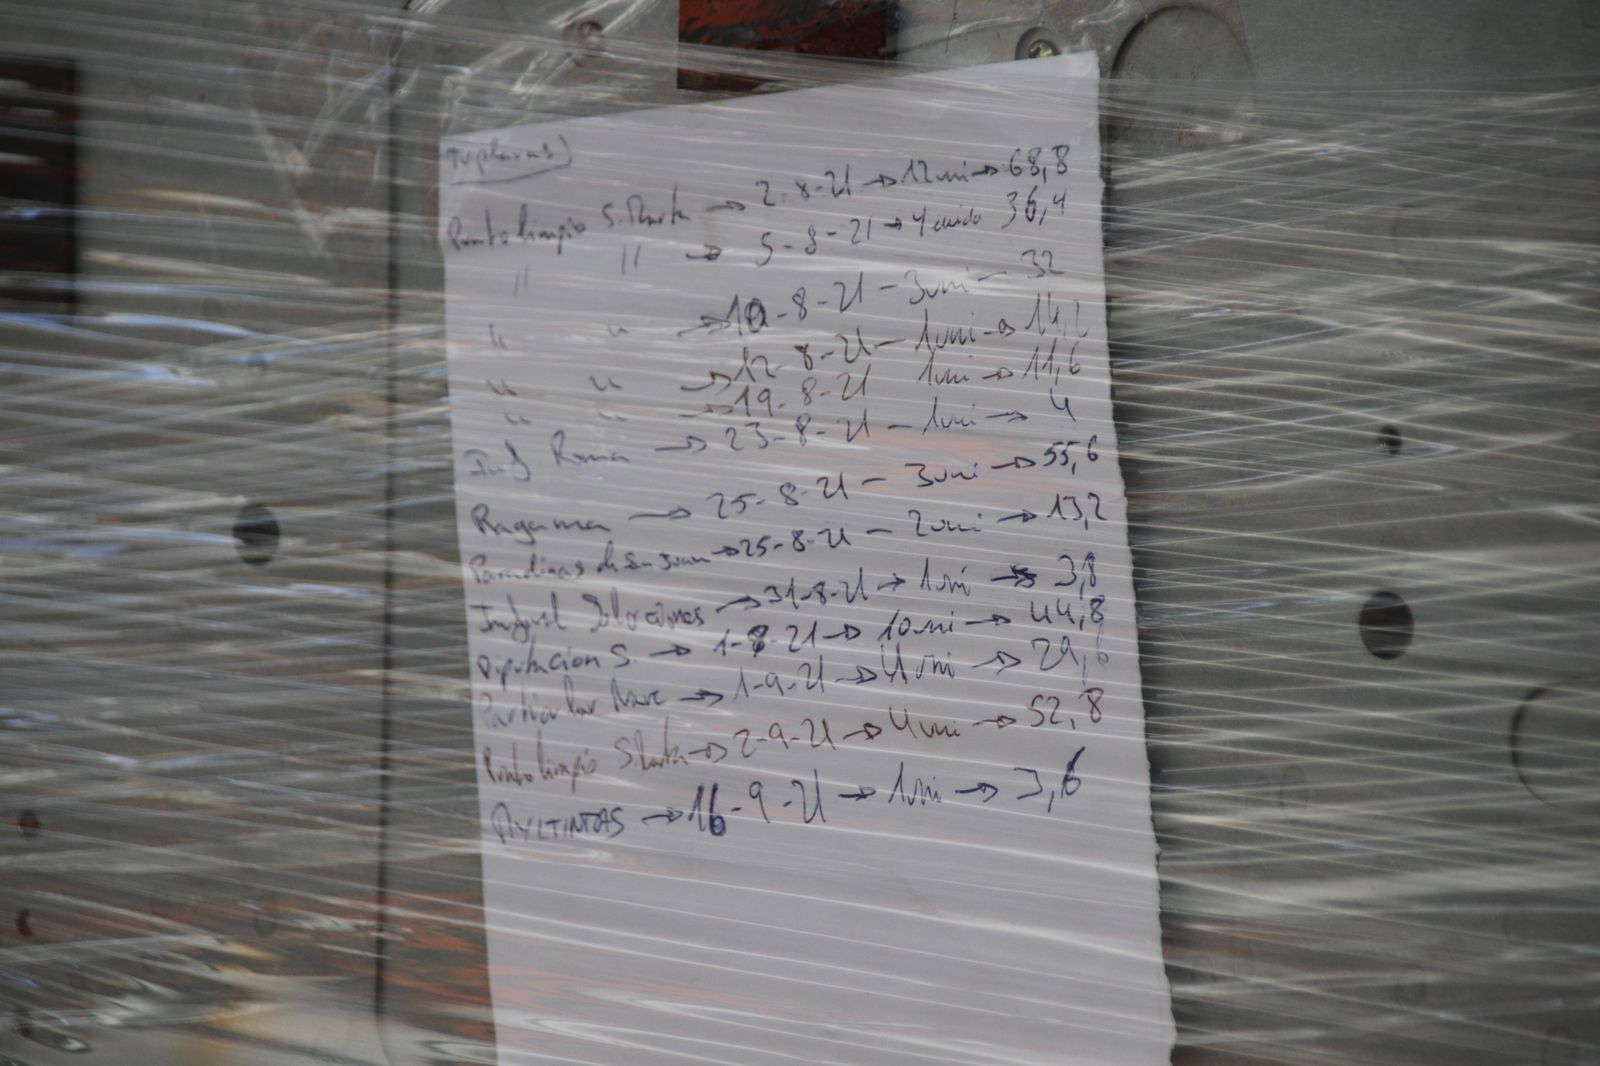 Punto limpio S. Marta → 2-8-21 → 12 uni → 68,8
" " → 5-8-21 → 4 unida 36,4
" " → 10-8-21 - 3 uni - 32
" " → 12-8-21 - 1 uni → 14,2
" " → 19-8-21 1 uni → 11,6
Roma → 23-8-21 - 1 uni → 4
Ragama → 25-8-21 - 3 uni → 55,6
Paradinas de San Juan → 25-8-21 - 2 uni → 13,2
→ 31-8-21 → 1 uni → 3,8
Diputacion S. → 1-8-21 → 10 uni → 44,8
Particular → 1-9-21 → 4 uni → 29,6
Punto limpio S. Marta → 2-9-21 → 4 uni → 52,8
→ 16-9-21 → 1 uni → 3,6